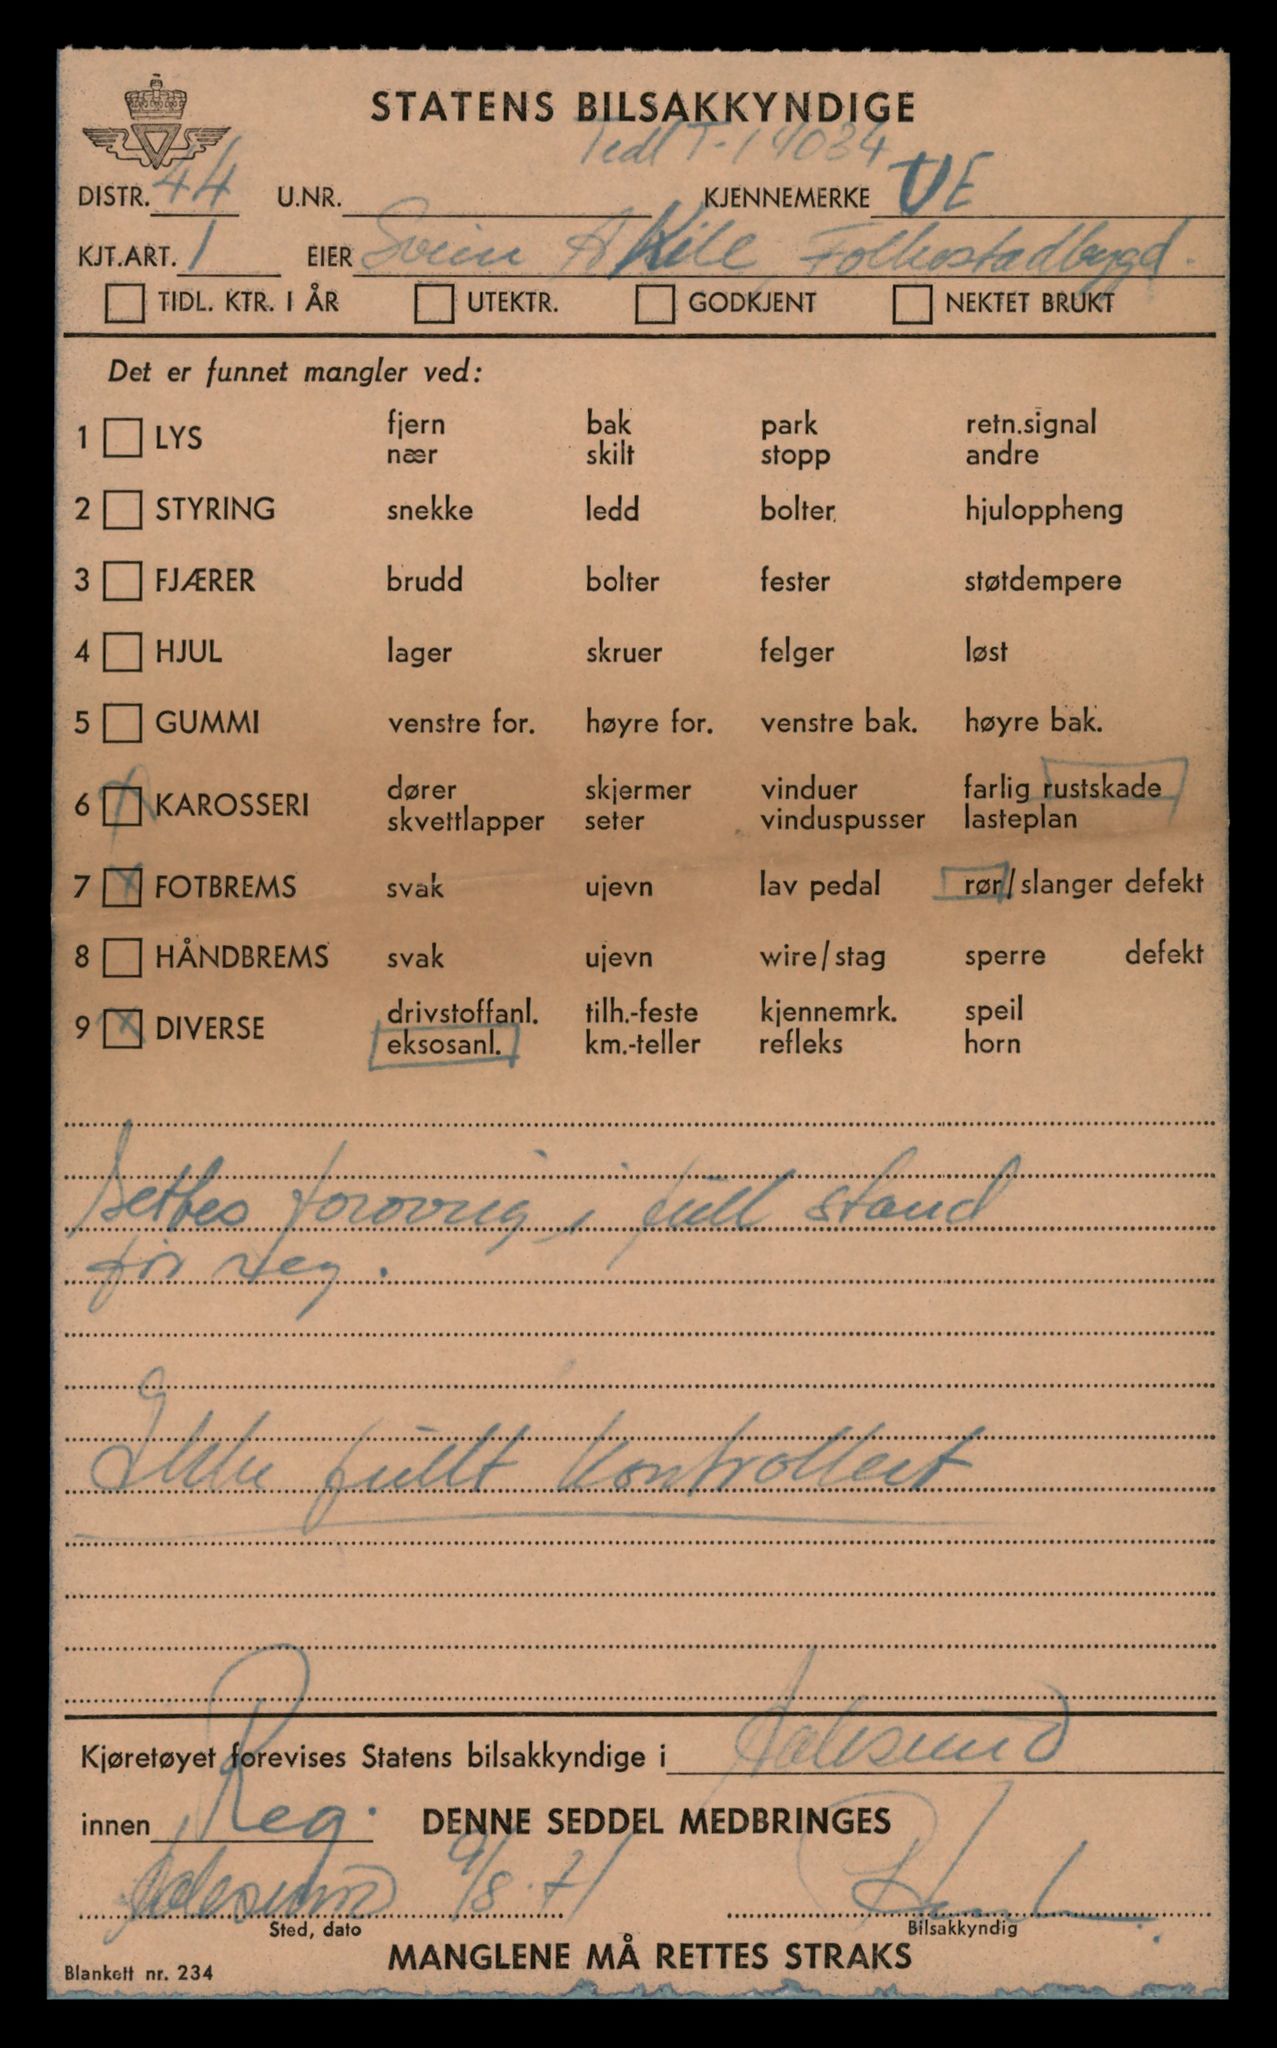 STATENS BILSAKKYNDIGE
Tedl T-14034
DISTR. 44 U.NR. KJENNEMERKE UE
KJT.ART. 1 EIER Svein A Kile Folkestadbygd.
TIDL. KTR. I ÅR UTEKTR. GODKJENT NEKTET BRUKT
Det er funnet mangler ved:
1 LYS fjern bak park retn.signal
nær skilt stopp andre
2 STYRING snekke ledd bolter hjuloppheng
3 FJÆRER brudd bolter fester støtdempere
4 HJUL lager skruer felger løst
5 GUMMI venstre for. høyre for. venstre bak. høyre bak.
6 KAROSSERI dører skjermer vinduer farlig rustskade
skvettlapper seter vinduspusser lasteplan
7 X FOTBREMS svak ujevn lav pedal rør/slanger defekt
8 HÅNDBREMS svak ujevn wire/stag sperre defekt
9 X DIVERSE drivstoffanl. tilh.-feste kjennemrk. speil
eksosanl. km.-teller refleks horn
Settes forøvrig i full stand
før reg.
Ikke fullt kontrollert
Kjøretøyet forevises Statens bilsakkyndige i Aalesund
innen Reg. DENNE SEDDEL MEDBRINGES
Aalesund 9/8-71
Sted, dato Bilsakkyndig
MANGLENE MÅ RETTES STRAKS
Blankett nr. 234